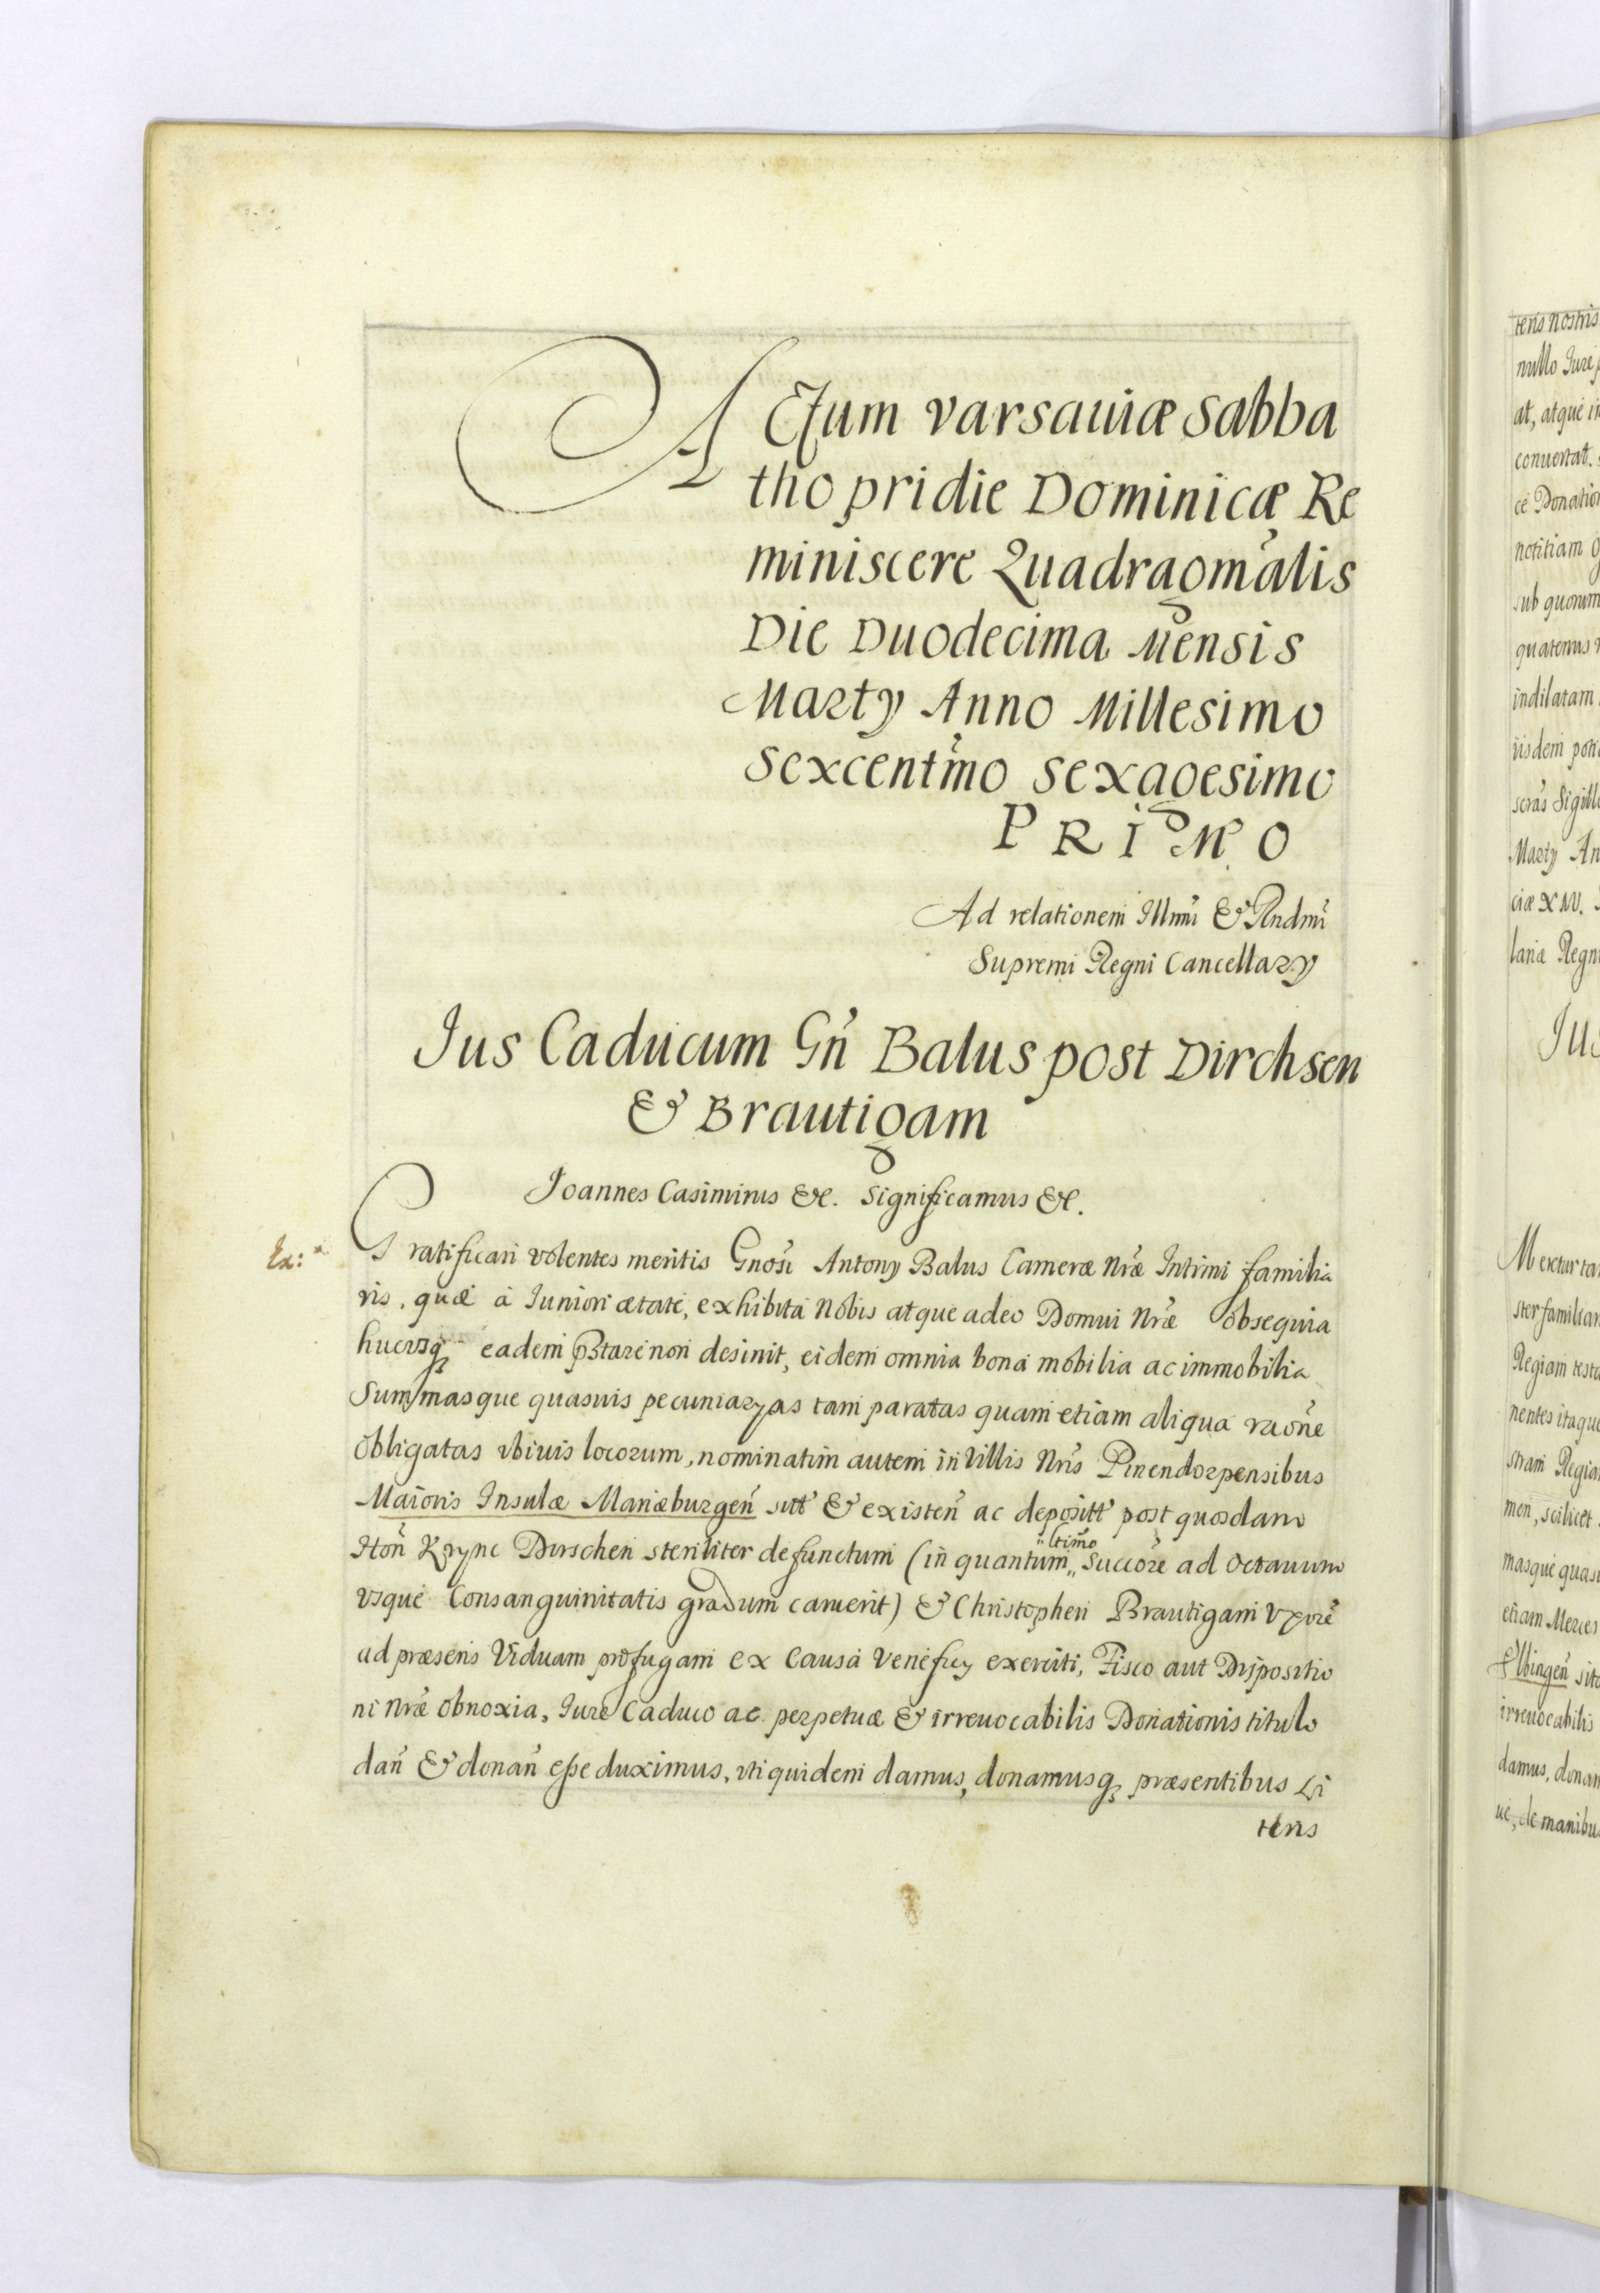 ACtum varsauiæ Sabba
tho pridie Dominicæ Re
miniscere Quadragm̃alis
Die Duodecima Mensis
Marty Anno Millesimo
Sexcentm̃o sexagesimo
PRIMO
Ad relationem Illmi & Rndmi
Supremi Regni Cancellary
Ius Caducum Gñ Balus post Dirchsen
& Brautigam
Joannes Casimirus &c. Significamus &c.
Ex:
Gratificari volentes meritis Gnosi Antony Balus Cameræ Nræ Intimi familia
ris, quæ à Iuniori ætate, exhibita Nobis atque adeo Domui Nræ obsequia
hucusq; eadem pstare non desinit, eidem omnia bona mobilia ac immobilia
Summasque quasuis pecuniaryas tam paratas quam etiam aliqua raone
obligatas vbiuis locorum, nominatim autem in Villis Nris Pirendorpensibus
Maioris Insulæ Mariæburgeñ sitt & existeñ ac depositt post quosdam
Hoñ Krync Dirschen steriliter defunctum (in quantum ultimo Succore ad Octauum
vsque Consanguinitatis gradum caruerit) & Christopheri Brautigam Vxore
ad præsens Viduam profugam ex causa Veneficy exerciti, Fisco aut Dispositio
ni Nræ obnoxia, Iure Caduco ac perpetuæ & irreuocabilis Donationis titulo
dañ & donañ esse duximus, vti quidem damus, donamusq; præsentibus Li
teris
teris nostris
nullo Iure
at, atque in
conuertat.
ce Donation
notitiam
sub quorum
quatenus
indilatam
iisdem
Sigill
Marty An
ciæ XIIV.
lariæ Regni
Ius
Meretur
ster familiar
Regiam
nentes itaque
stram Regia
men, scilicet
masque quas
etiam Merces
Elbingeñ
irreuocabilis
damus, donam
ue, de manibus